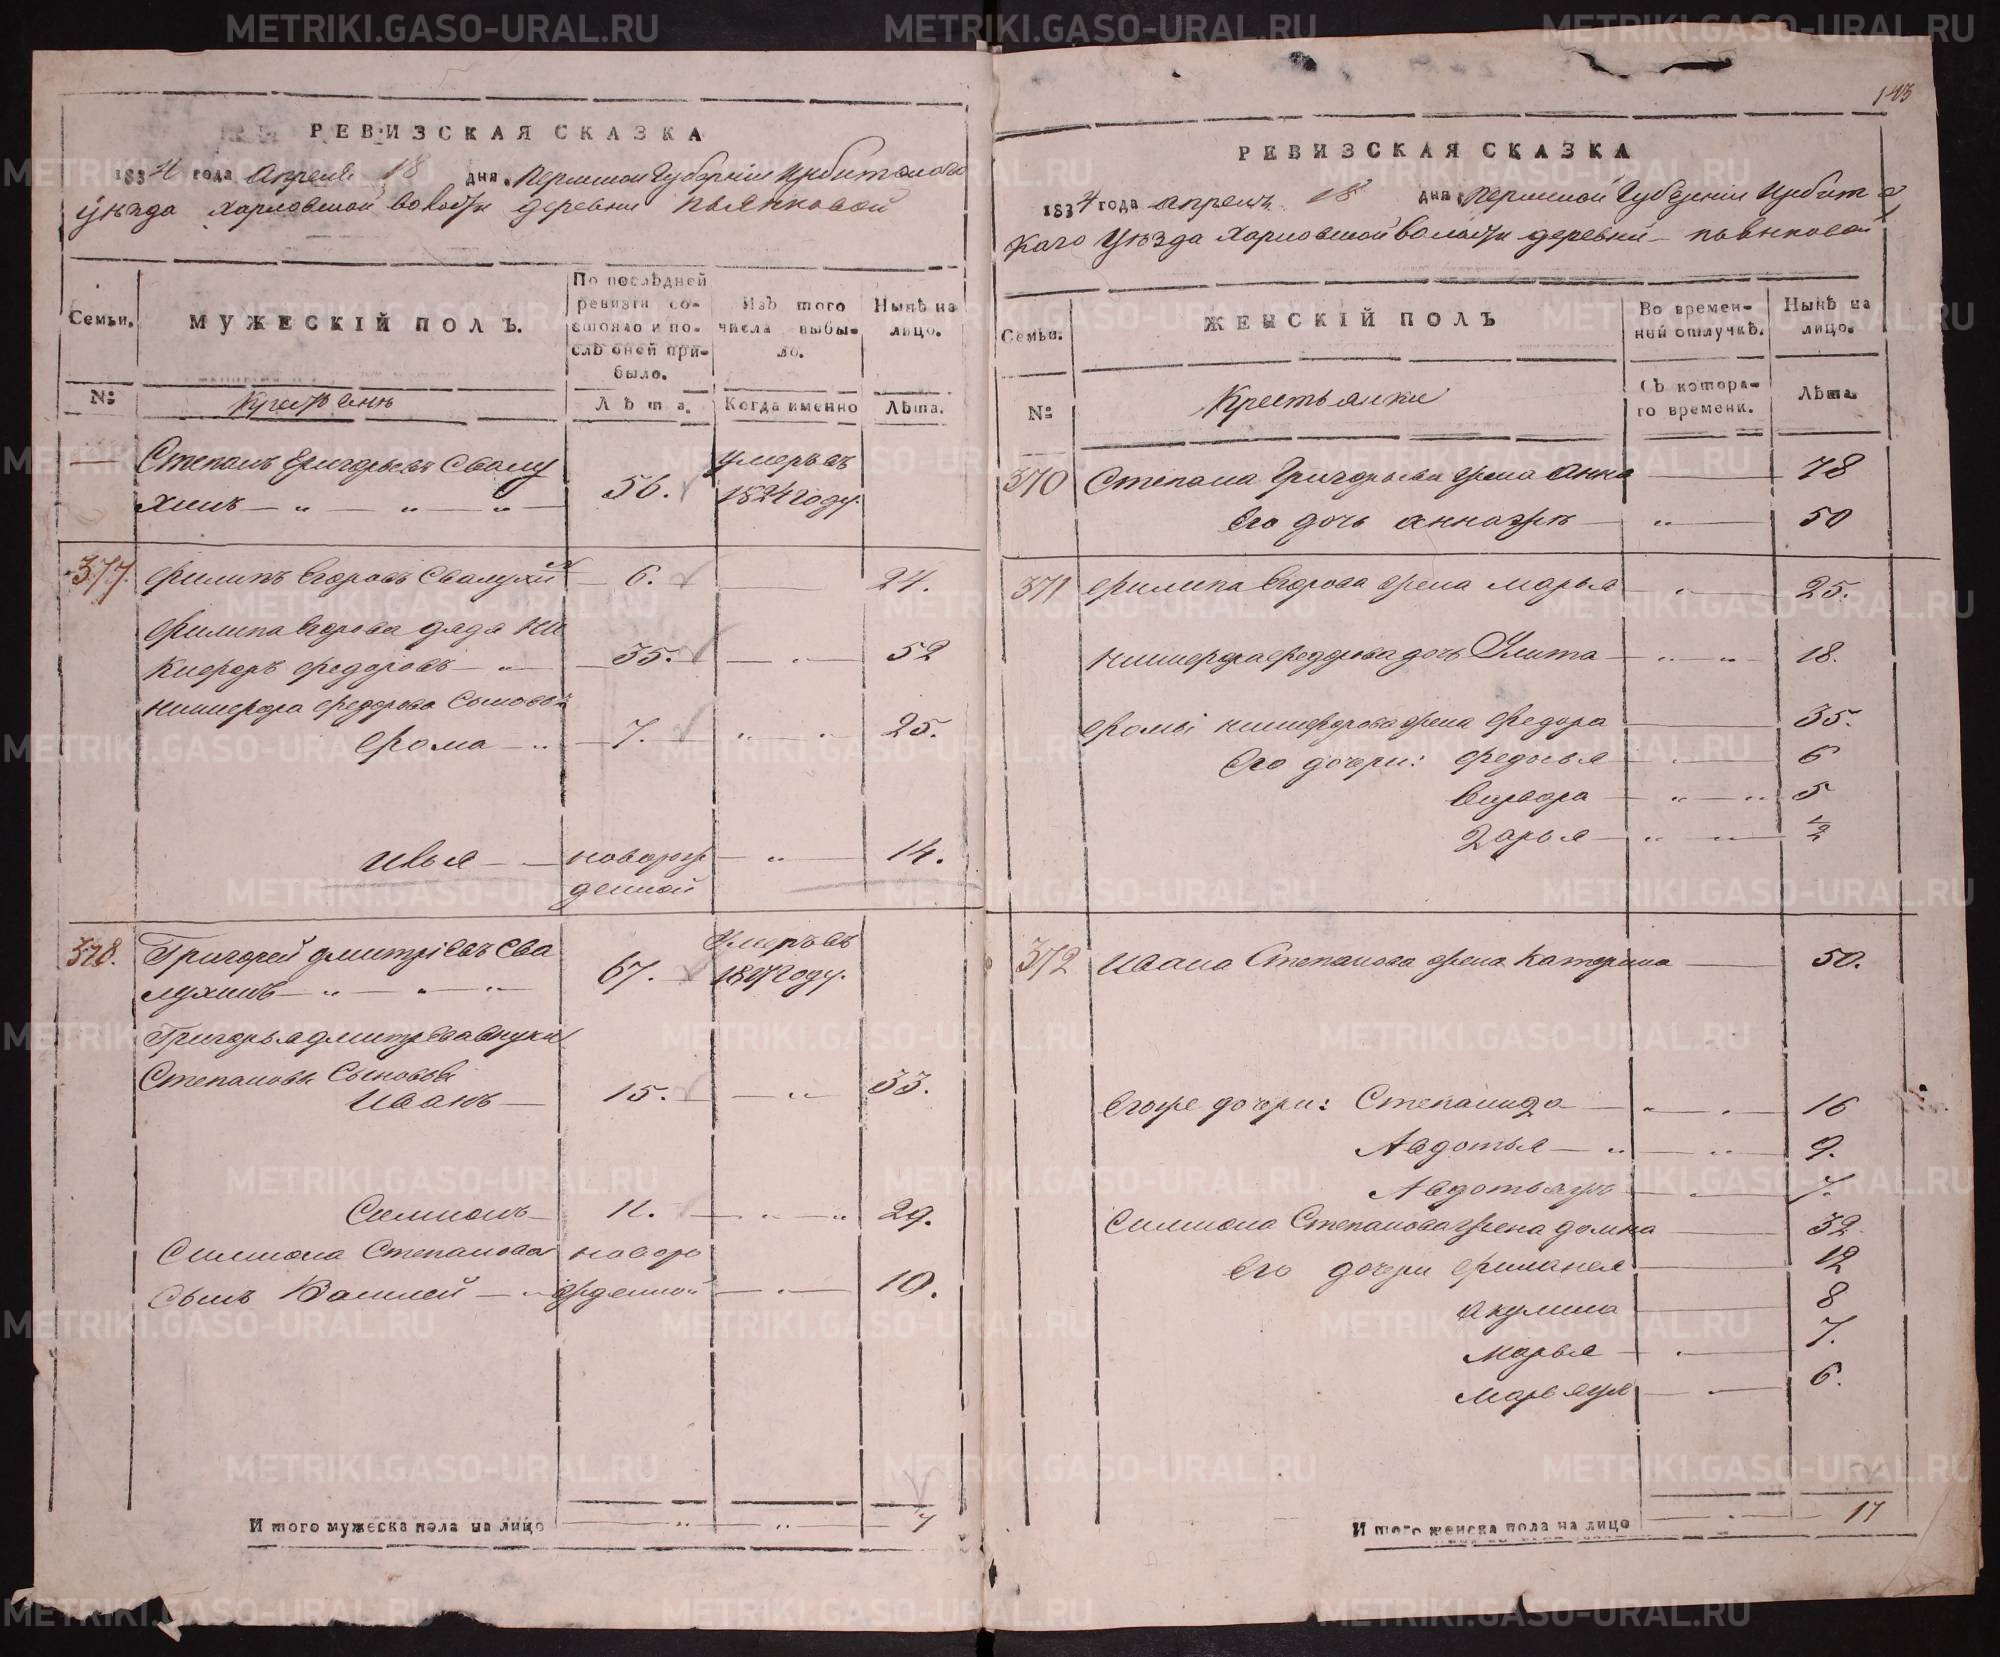 РЕВИЗСКАЯ СКАЗКА
1834 года Апреля 18 дня, Пермской Губернии Ирбитскаго
уѣзда Харловской волости деревни Пьянковой
Семьи.
МУЖЕСКІЙ ПОЛЪ.
По послѣдней ревизіи состояло и послѣ оней прибыло.
Изъ того числа выбыло.
Нынѣ на лицо.
№
Крестьяне
Лѣта.
Когда именно
Лѣта.
Степанъ Григорьевъ Свалу
хинъ 56. умеръ въ 1824 году.
377. Филипъ Егоровъ Свалухин 6. 24.
Филипа Егорова дядя Ни
кифоръ Федоровъ 35. 52
Никифора Федорова Сыновья
Фома 7. 25.
Илья новорож 14.
денной
378. Григорей Дмитріевъ Сва 67. Умеръ въ
лухинъ году.
Григорья Дмитрева внуки
Степановы Сыновья
Иванъ 15. 33.
Симионъ 11. 29.
Симиона Степанова новоро
сынъ Василей жденной 10.
Итого мужеска пола на лицо 7
143
РЕВИЗСКАЯ СКАЗКА
1834 года апреля 18 дня Пермской Губерніи Ирбитс
каго Уѣзда Харловской волости деревни Пьянковой
Семьи.
ЖЕНСКІЙ ПОЛЪ
Во временной отлучкѣ.
Нынѣ на лицо.
№
Крестьянки
Съ котораго времени.
Лѣта.
370 Степана Григорьева жена Анна 78
Его дочь Анна жъ 50
371 Филипа Егорова жена Марья 25.
Никифора Федорова дочь Улита 18.
Фомы Никифорова жена Федора 35.
Его дочери: Федосья 6
Варвара 5
Дарья 1/2
372 Ивана Степанова жена Катерина 50.
Егоже дочери: Степанида 16
Авдотья 9.
Авдотья жъ 7.
Симиона Степанова жена Домна 32
Его дочери 12
Акулина 8
Марья 7.
Марья жъ 6.
Итого женска пола на лицо 17
METRIKI.GASO-URAL.RU